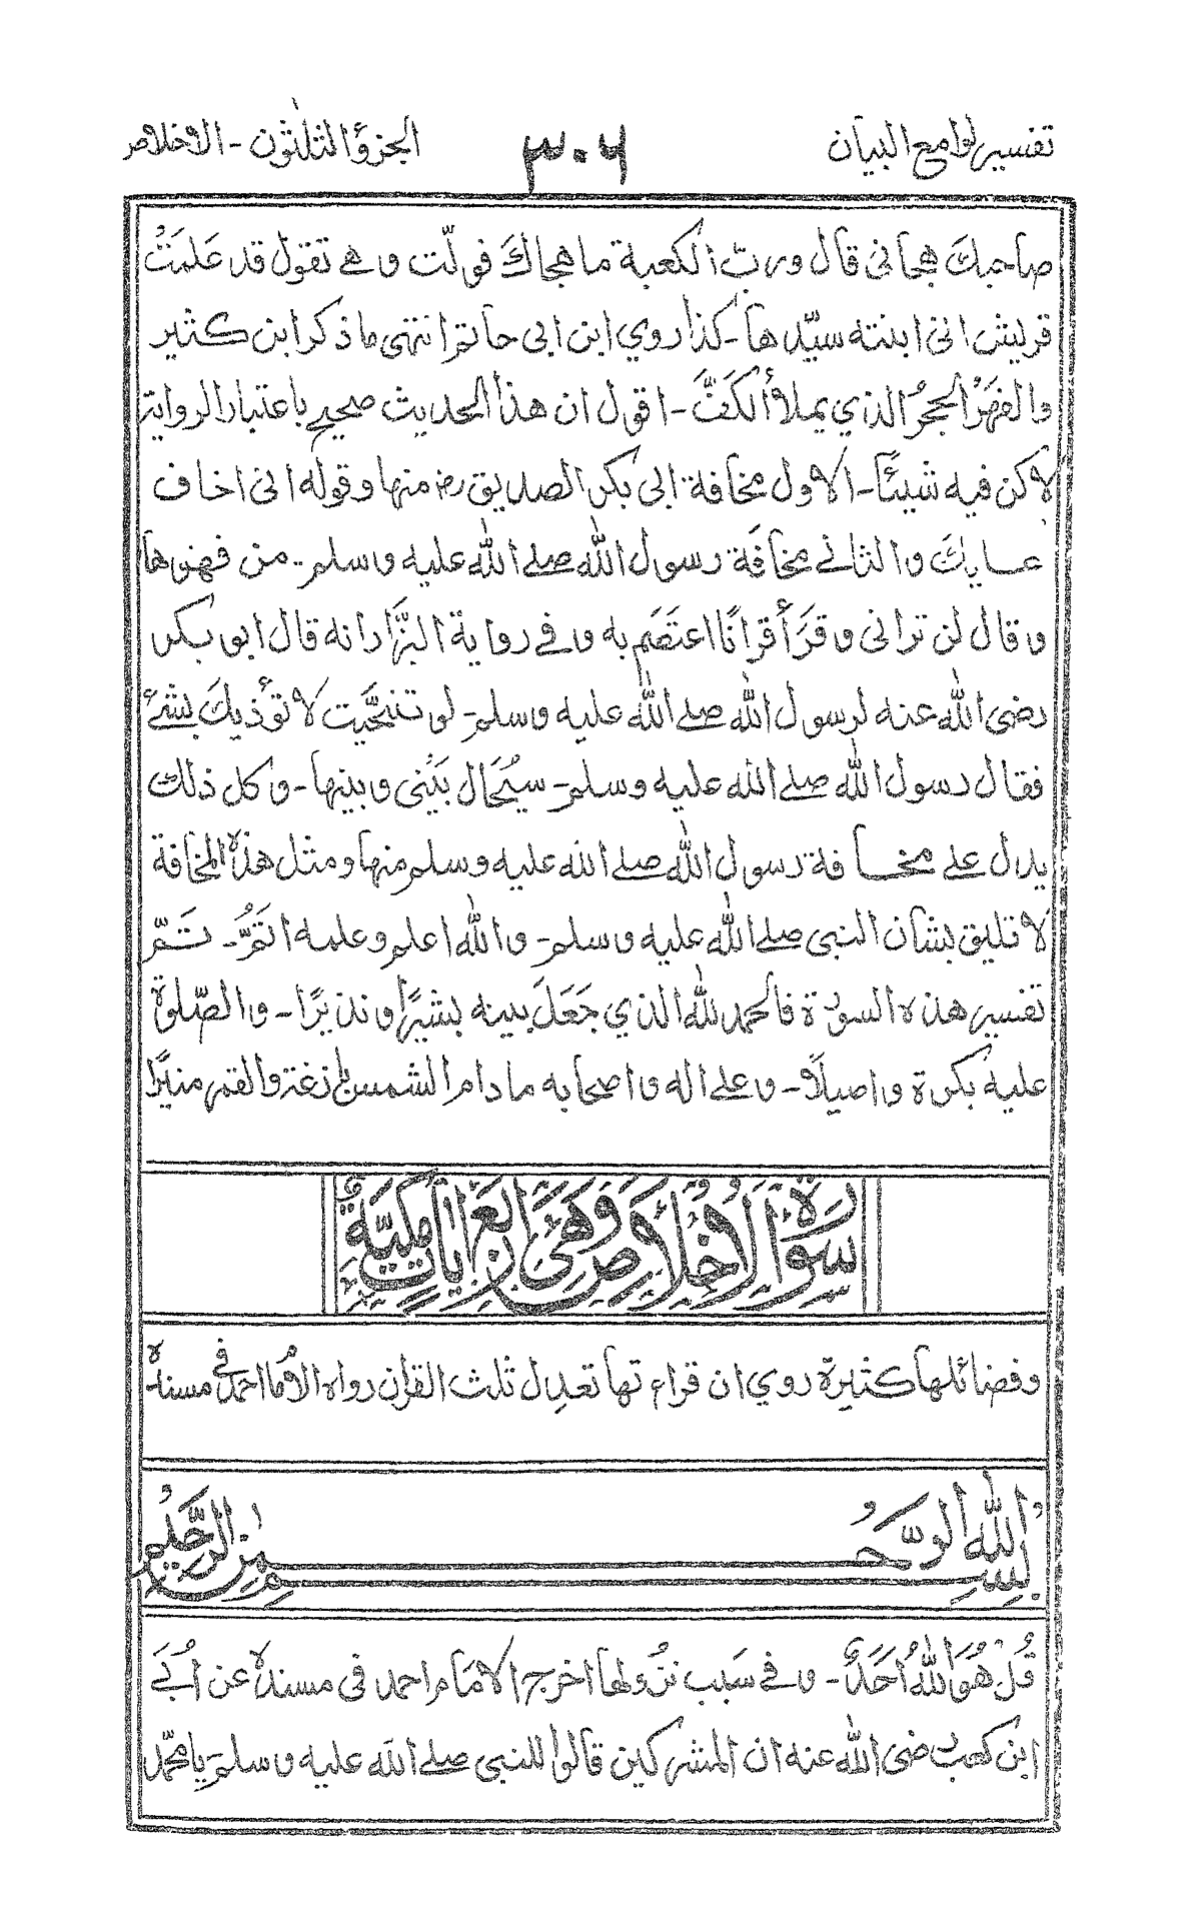 تفسير لوامع البيان ٣٠٦ الجزؤ الثلٰثون - الاخلاص
صاحبكَ هجانى قال وربّ الكعبة ما هجاكَ فولّت وهى تقول قد عَلمَتْ
قريش انى ابنته سيّدها - كذا روي ابن ابى حاتم انتهى ما ذكر ابن كثير
والفهْرُ الحجرُ الذي يملأ الكَفَّ - اقول ان هذا الحديث صحيح باعتبار الرواية
لاكن فيه شيئاً - الاول مخافة ابى بكر الصديق رض منها وقوله انى اخاف
عليكَ والثانى مخافَة رسول الله صلى الله عليه وسلم - من فهوها
وقال لن ترانى وقَرَأَ قرانًا اعتَصَم به وفى رواية البزَّار انه قال ابو بكر
رضى الله عنه لرسول الله صلى الله عليه وسلم - لو تنحَّيت لا تؤذيكَ بشئ
فقال رسول الله صلى الله عليه وسلم - سيُحَال بَيْنى وبينها - وكل ذلك
يدل على مخافة رسول الله صلى الله عليه وسلم منها ومثل هذه المخافة
لا تليق بشان النبى صلى الله عليه وسلم - والله اعلم وعلمه اتَمُّ - تَمّ
تفسير هذه السورة فالحمد لله الذي جَعَلَ بينه بشيرًا ونذيرًا - والصّلوة
عليه بكرة واصيلًا - وعلى اله واصحابه ما دام الشمس بازغة والقمر منيرًا
سورة الاخلاص وهى اربع ايات مكية
وفضائلها كثيرة روي ان قراءتها تعدل ثلث القران رواه الامام احمد فى مسنده
بسم الله الرحمن الرحيم
قُلْ هُوَ اللهُ اَحَدٌ - وفى سَبب نزولها اخرج الامام احمد فى مسنده عن اُبَىّ
ابن كعب رضى الله عنه ان المشركين قالوا للنبى صلى الله عليه وسلم - يا محمّد